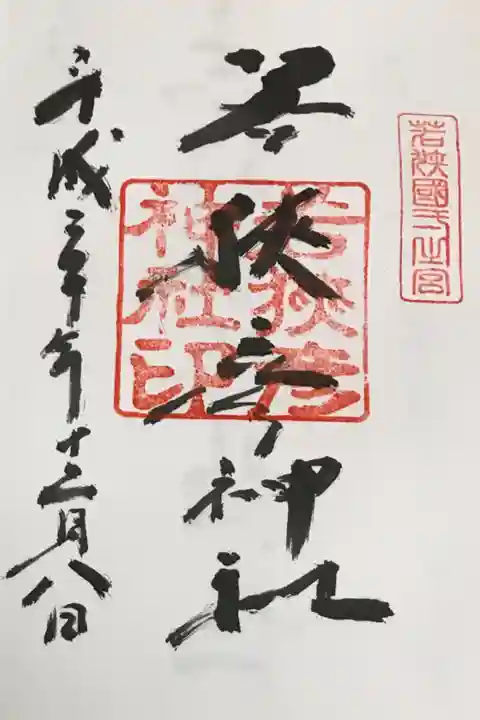 若狹國一之宮
若狭彦神社
若狹彦
神社印
平成三十年十二月八日